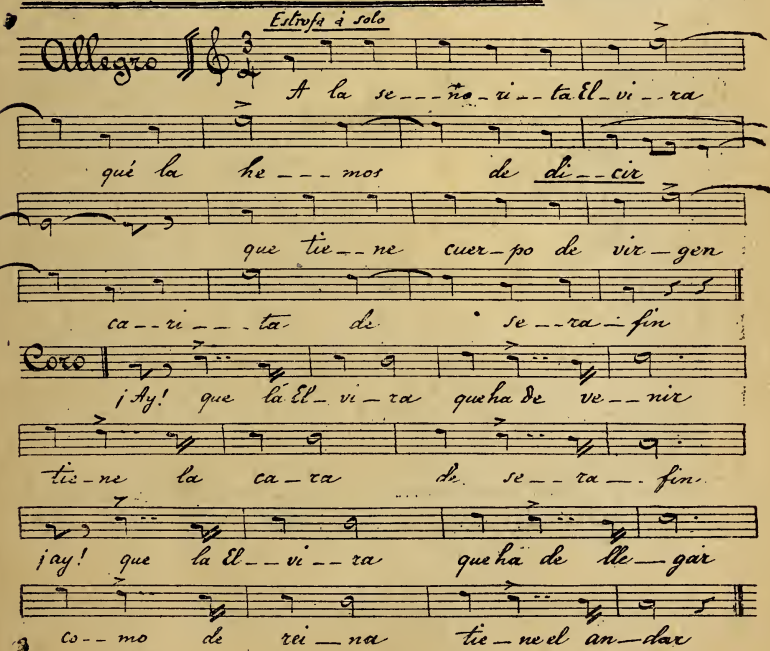 Estrofa á solo
Allegro 3 4
A la se---ño-ri--ta El-vi--ra
qué la he---mos de di--cir
que tie--ne cuer-po de vir-gen
ca--ri---ta de se--ra-fin
Coro
¡Ay! que lá El-vi-ra que ha de ve--nir
tie-ne la ca-ra de se-ra-fin.
¡ay! que la El--vi--ra que ha de lle-gar
co--mo de rei-na tie-ne el an-dar